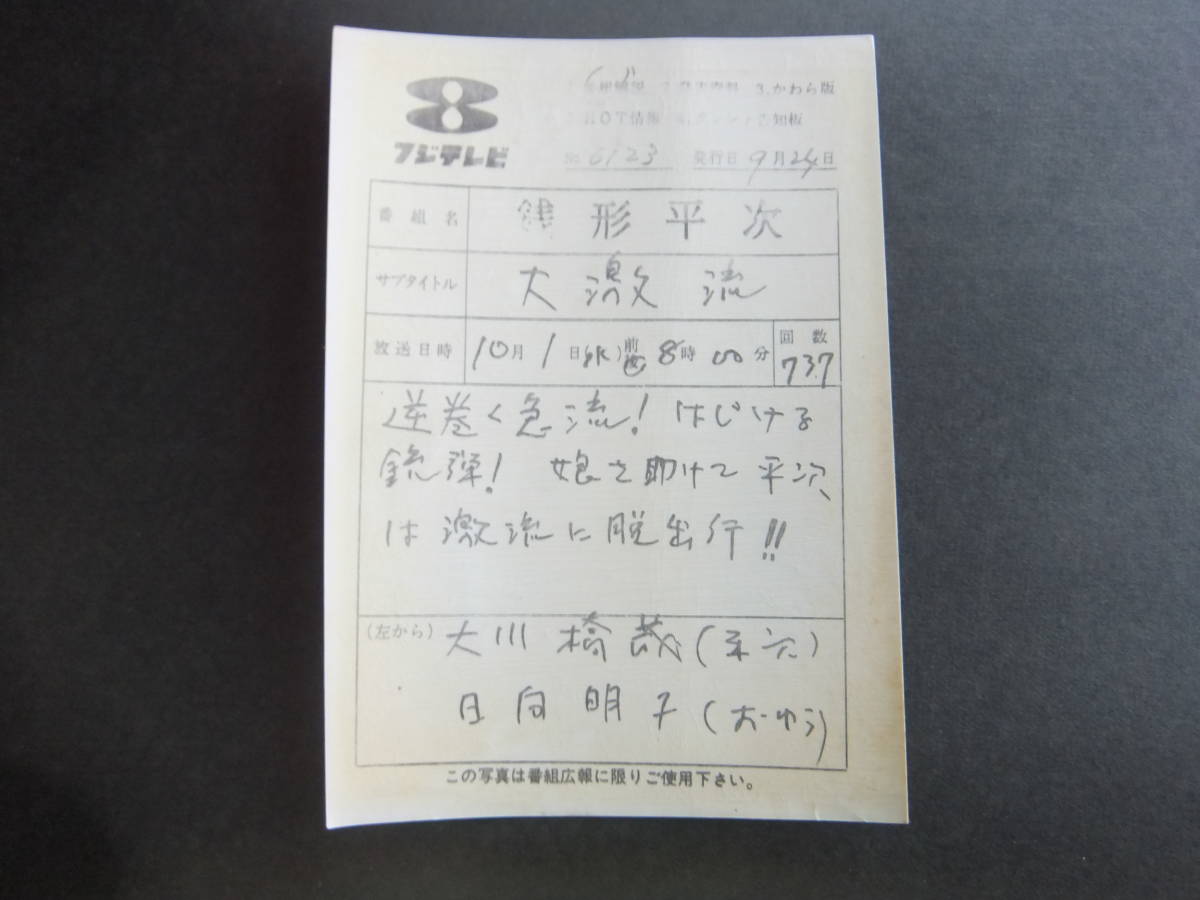 3.かわら版
HOT情報 知板
フジテレビ
No. 6123 発行日 9月24日
番組名 銭形平次
サブタイトル 大激流
放送日時 10月1日(水)前後8時00分 回数 737
逆巻く急流!はじける
銃弾! 娘を助けて平次
は激流に脱出行!!
(左から) 大川橋蔵(平次)
日向明子(おゆう)
この写真は番組広報に限りご使用下さい。